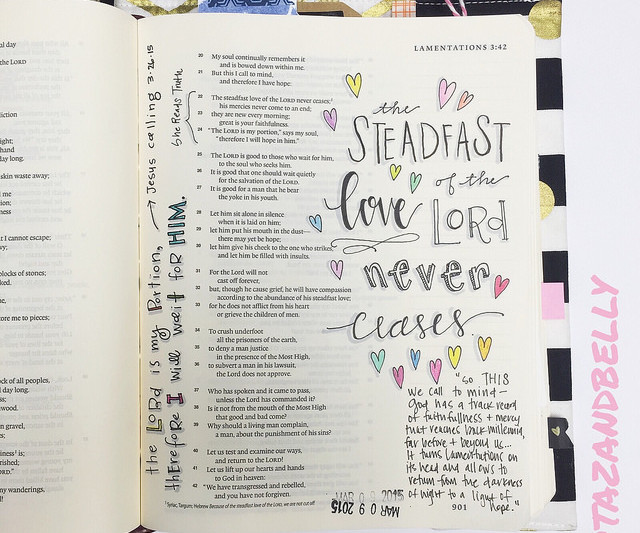 al day
the LORD
diction
ight;
hand
ay long.
skin waste away;
me
ion;
ness
t I cannot escape;
vy;
blocks of stones;
ked.
ore me to pieces;
ck of all peoples,
l day long.
s;
wood.
n gravel,
es;
iness is;
rished;
LORD."
ny wanderings,
l!
the LORD is my Portion, → Jesus calling 3·26·15
therefore I will wait for HIM.
She Reads Truth
LAMENTATIONS 3:42
20 My soul continually remembers it
and is bowed down within me.
21 But this I call to mind,
and therefore I have hope:
22 The steadfast love of the LORD never ceases;
his mercies never come to an end;
23 they are new every morning;
great is your faithfulness.
24 "The LORD is my portion," says my soul,
"therefore I will hope in him."
25 The LORD is good to those who wait for him,
to the soul who seeks him.
26 It is good that one should wait quietly
for the salvation of the LORD.
27 It is good for a man that he bear
the yoke in his youth.
28 Let him sit alone in silence
when it is laid on him;
29 let him put his mouth in the dust—
there may yet be hope;
30 let him give his cheek to the one who strikes,
and let him be filled with insults.
31 For the Lord will not
cast off forever,
32 but, though he cause grief, he will have compassion
according to the abundance of his steadfast love;
33 for he does not afflict from his heart
or grieve the children of men.
34 To crush underfoot
all the prisoners of the earth,
35 to deny a man justice
in the presence of the Most High,
36 to subvert a man in his lawsuit,
the Lord does not approve.
37 Who has spoken and it came to pass,
unless the Lord has commanded it?
38 Is it not from the mouth of the Most High
that good and bad come?
39 Why should a living man complain,
a man, about the punishment of his sins?
40 Let us test and examine our ways,
and return to the LORD!
41 Let us lift up our hearts and hands
to God in heaven:
42 "We have transgressed and rebelled,
and you have not forgiven.
1 Syriac, Targum; Hebrew Because of the steadfast love of the LORD, we are not cut off
the
STEADFAST
love of the
LORD
never
ceases
"so THIS
we call to mind—
God has a track record
of faithfulness + mercy
that reaches back millennia,
far before + beyond us...
It turns Lamentations on
its head and allows to
return from the darkness
of night to a light of
hope."
MAR 0 9 2015
MAR 0 9 2015
901
R
TAZANDBELLY